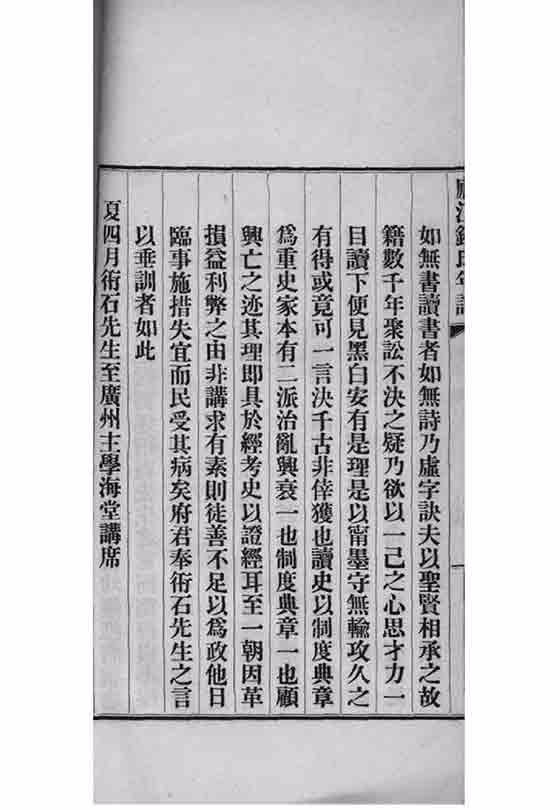 年譜
如無書讀書者如無詩乃虛字訣夫以聖賢相承之故
籍數千年聚訟不決之疑乃欲以一己之心思才力一
目讀下便見黑白安有是理是以甯墨守無輸攻久之
有得或竟可一言決千古非倖獲也讀史以制度典章
爲重史家本有二派治亂興衰一也制度典章一也顧
興亡之迹其理即具於經考史以證經耳至一朝因革
損益利弊之由非講求有素則徒善不足以爲政他日
臨事施措失宜而民受其病矣府君奉術石先生之言
以垂訓者如此
夏四月術石先生至廣州主學海堂講席